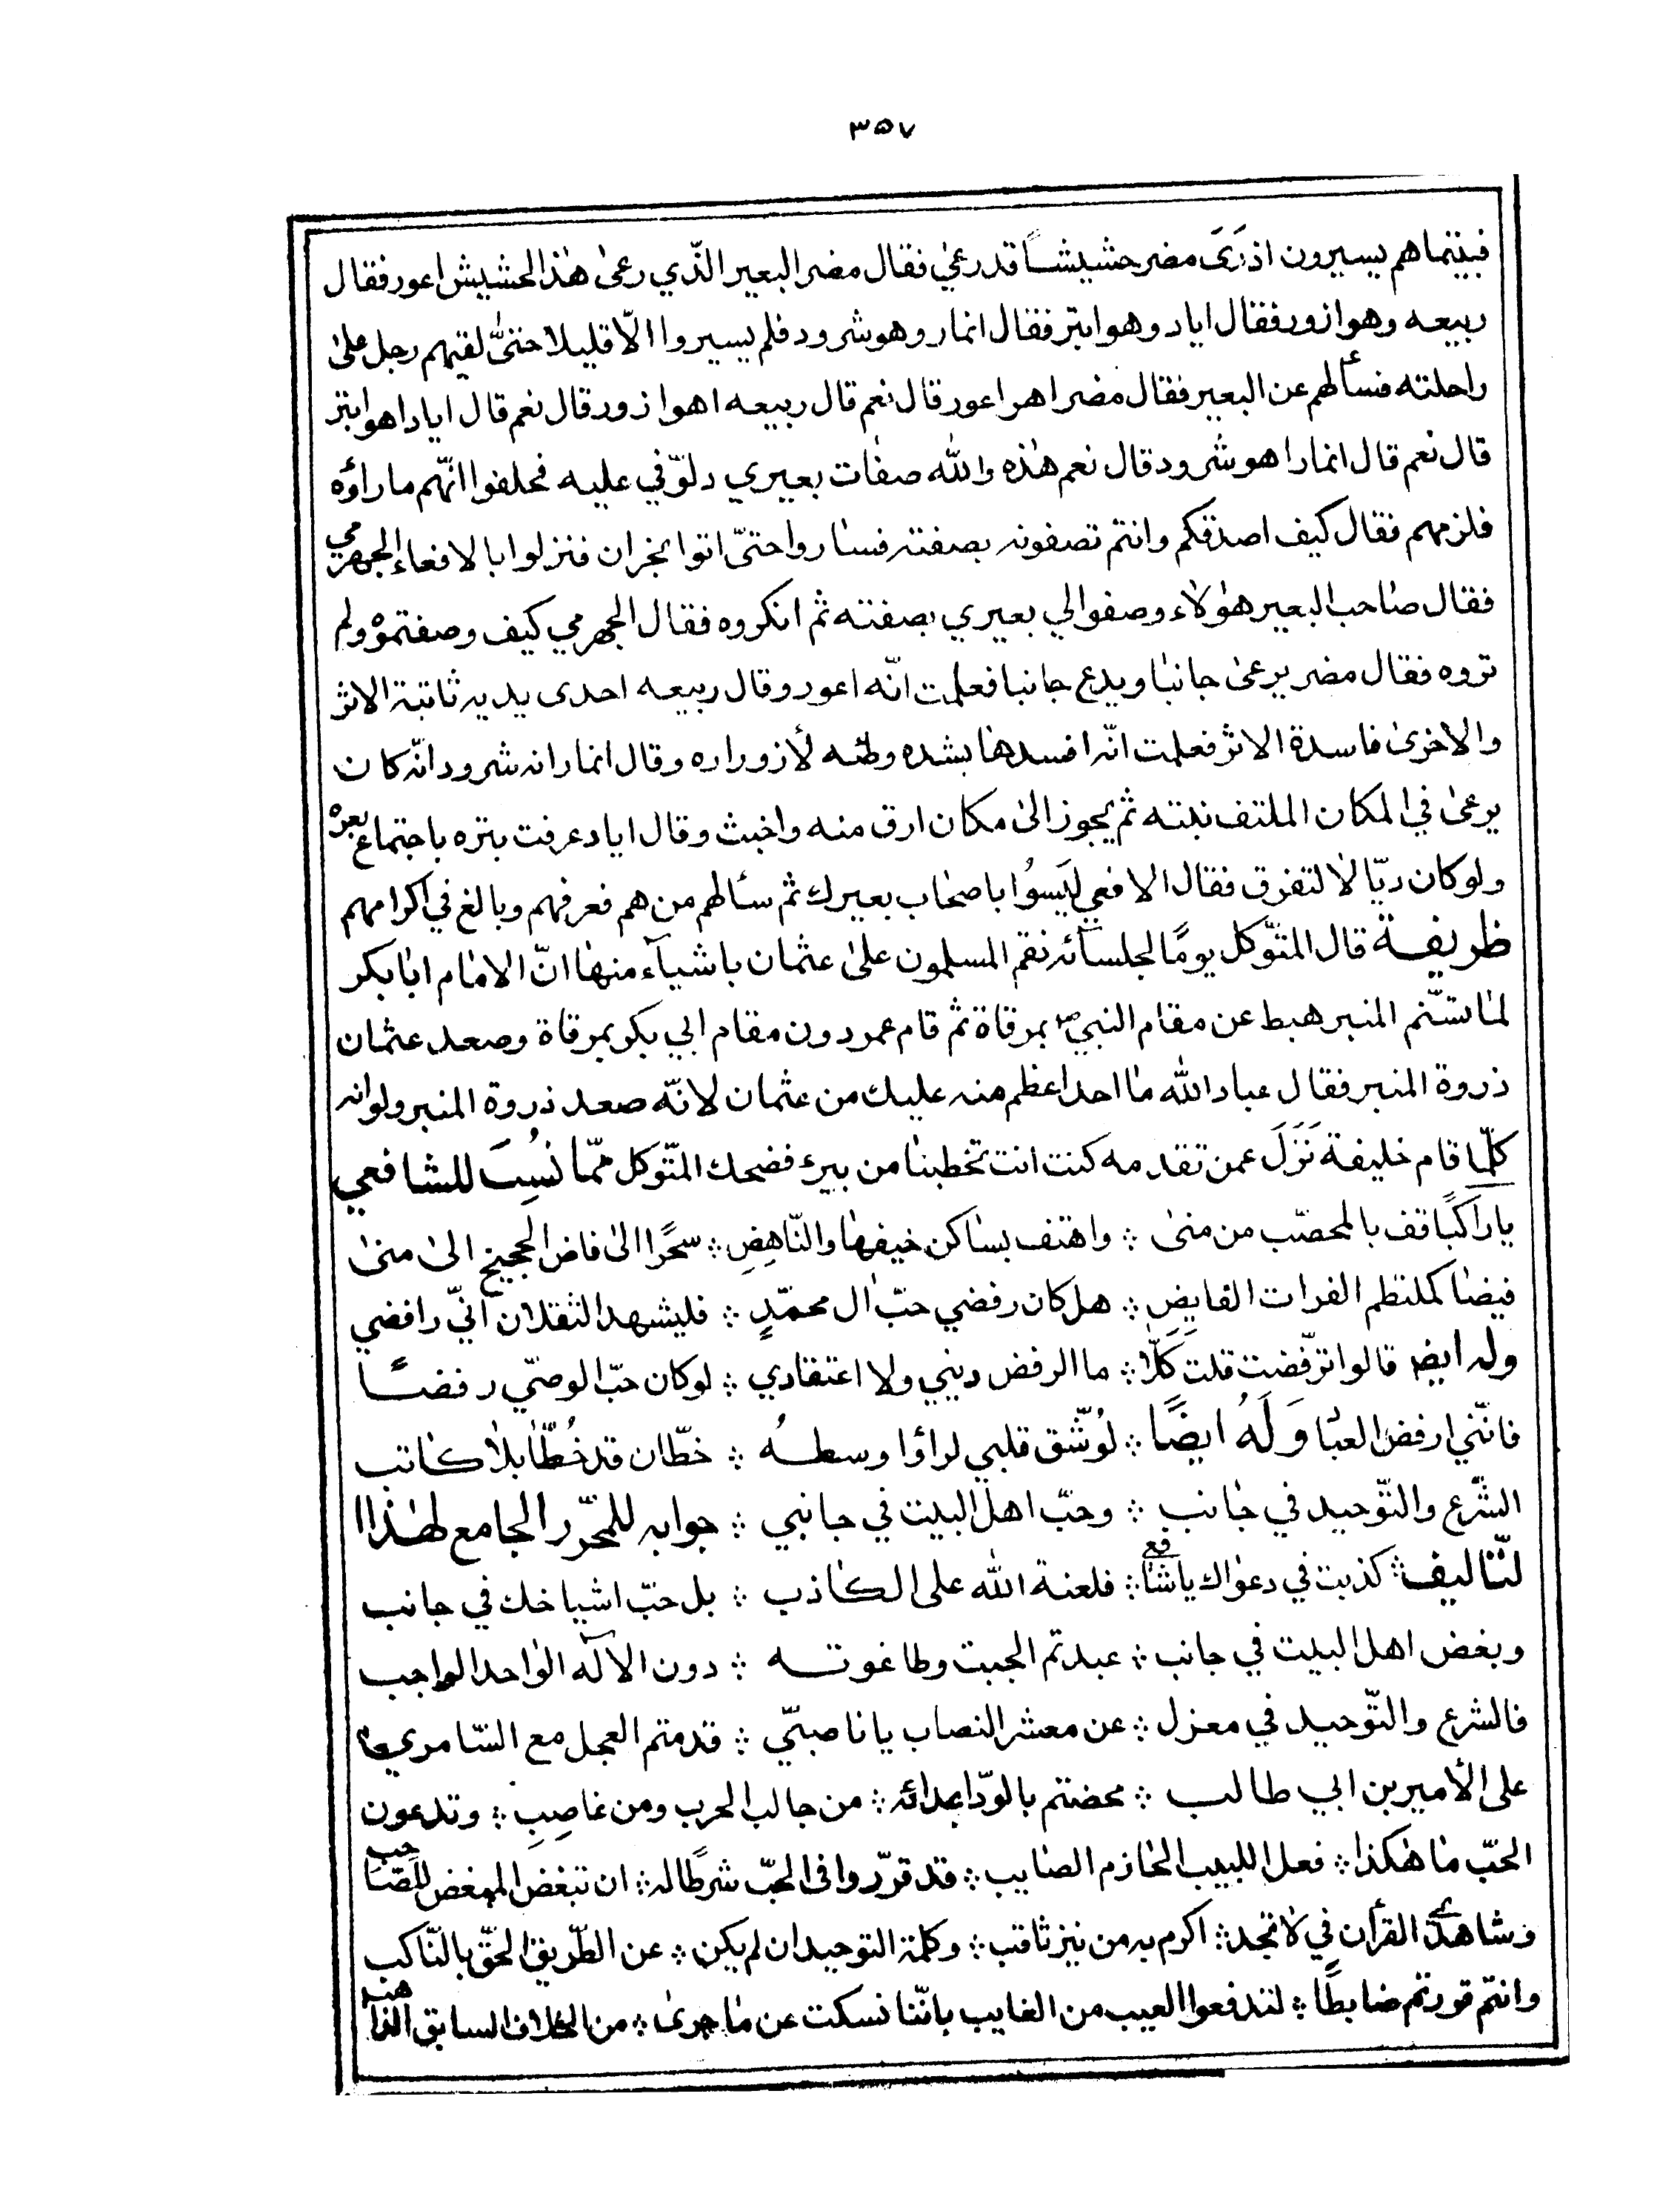 ٣٥٧
فبينما هم يسيرون اذ رَىَ مضر حشيشاً قد رعي فقال مضر البعير الّذي رعىٰ هٰذا الحشيش اعور فقال
ربيعه وهو ازور فقال اياد وهو ابتر فقال انمار وهو شرود فلم يسيروا الّا قليلا حتىّٰ لقيهم رجل علىٰ
راحلته فسألهم عن البعير فقال مضر اهو اعور قال نعم قال ربيعه اهو ازور قال نعم قال اياد اهو ابتر
قال نعم قال انمار اهو شرود قال نعم هٰذه واللّٰه صفات بعيري دلّوني عليه فحلفوا انّهم ما راؤه
فلزمهم فقال كيف اصدقكم وانتم تصفونه بصفته فساروا حتىّ اتوا نجران فنزلوا بالافعاء الجهرمي
فقال صاحب البعير هؤلاء وصفوا لي بعيري بصفته ثم انكروه فقال الجهرمي كيف وصفتموه ولم
تروه فقال مضر يرعىٰ جانبا ويدع جانبا فعلمت انّه اعور وقال ربيعه احدى يديه ثابتة الاثر
والاخرىٰ فاسدة الاثر فعلمت انّه افسدها بشده وطئه لأزوراره وقال انمار انه شرود انّه كان
يرعىٰ في المكان الملتف نبته ثم يجوز الىٰ مكان ارق منه واخبث وقال اياد عرفت بتره باجتماع بعره
ولو كان ديّالا لتفرق فقال الافعي ليَسوُا باصحاب بعيرك ثم سألهم من هم فعرفهم وبالغ في اكرامهم
ظريفة قال المتوّكل يومًا لجلسآئه نقم المسلمون علىٰ عثمان باشيآء منها انّ الامام ابابكر
لما تسّنم المنبر هبط عن مقام النبيّ ص بمرقاة ثم قام عمر دون مقام ابي بكر بمرقاة وصعد عثمان
ذروة المنبر فقال عباد اللّٰه ما احد اعظم منه عليك من عثمان لانّه صعد ذروة المنبر ولو انه
كلّما قام خليفة نَزَلَ عمن تقدمه كنت انت تخطبنا من بيرء فضحك المتّوكل ممّا نُسِبَ للشافعي
يا راكبًا قف بالمحصّب من منىٰ ؞ واهتف بساكن خيفها والنّاهِضِ ؞ سحرًا الىٰ فاض الحجيج الىٰ منىٰ
فيضا كملتطم الفرات الفايض ؞ هل كان رفضي حبّ ال محمّدٍ ؞ فليشهد الثقلان انيّ رافضي
وله ايض قالوا ترّفضت قلت كَلّا ؞ ما الرفض ديني ولا اعتقادي ؞ لو كان حبّ الوصّي رفضًا
فانّني ارفض العبا وَلَهُ ايضًا ؞ لوُشّق قلبي لراؤا وسطهُ ؞ خطّان قد خُطّا بلا كاتب
الشّرع والتّوحيد في جانب ؞ وحبّ اهل البيت في جانبي ؞ جوابه للمحّرر الجامع لهٰذا ا
لتّاليف ؞ كذبت في دعواك يا شافع ؞ فلعنة اللّٰه على الكاذب ؞ بل حبّ اشياخك في جانب
وبغض اهل البيت في جانب ؞ عبدتم الجبت وطاغوته ؞ دون الآله الواحد الواجب
فالشرع والتّوحيد في معزل ؞ عن معشر النصاب يا ناصبيّ ؞ قدمتم العجل مع السّامري
على الأمير بن ابي طالب ؞ محضتم بالودّ اعدائه ؞ من جالب الحرب ومن غاصِبِ ؞ وتدعون
الحبّ ما هٰكذا ؞ فعل اللبيب الحازم الصايب ؞ قد قرّروا في الحبّ شرطا له ؞ ان تبغض المبغض للصّاحب
وشاهدي القرآن في لا تجد ؞ اكرم به من نيّر ثاقب ؞ وكلمة التوحيد ان لم يكن ؞ عن الطّريق الحقّ بالنّاكب
وانتم قررتم ضابطًا ؞ لتدفعوا العيب من الغايب باننّا نسكت عن ما جرىٰ ؞ من الخلاف السابق الذاهب